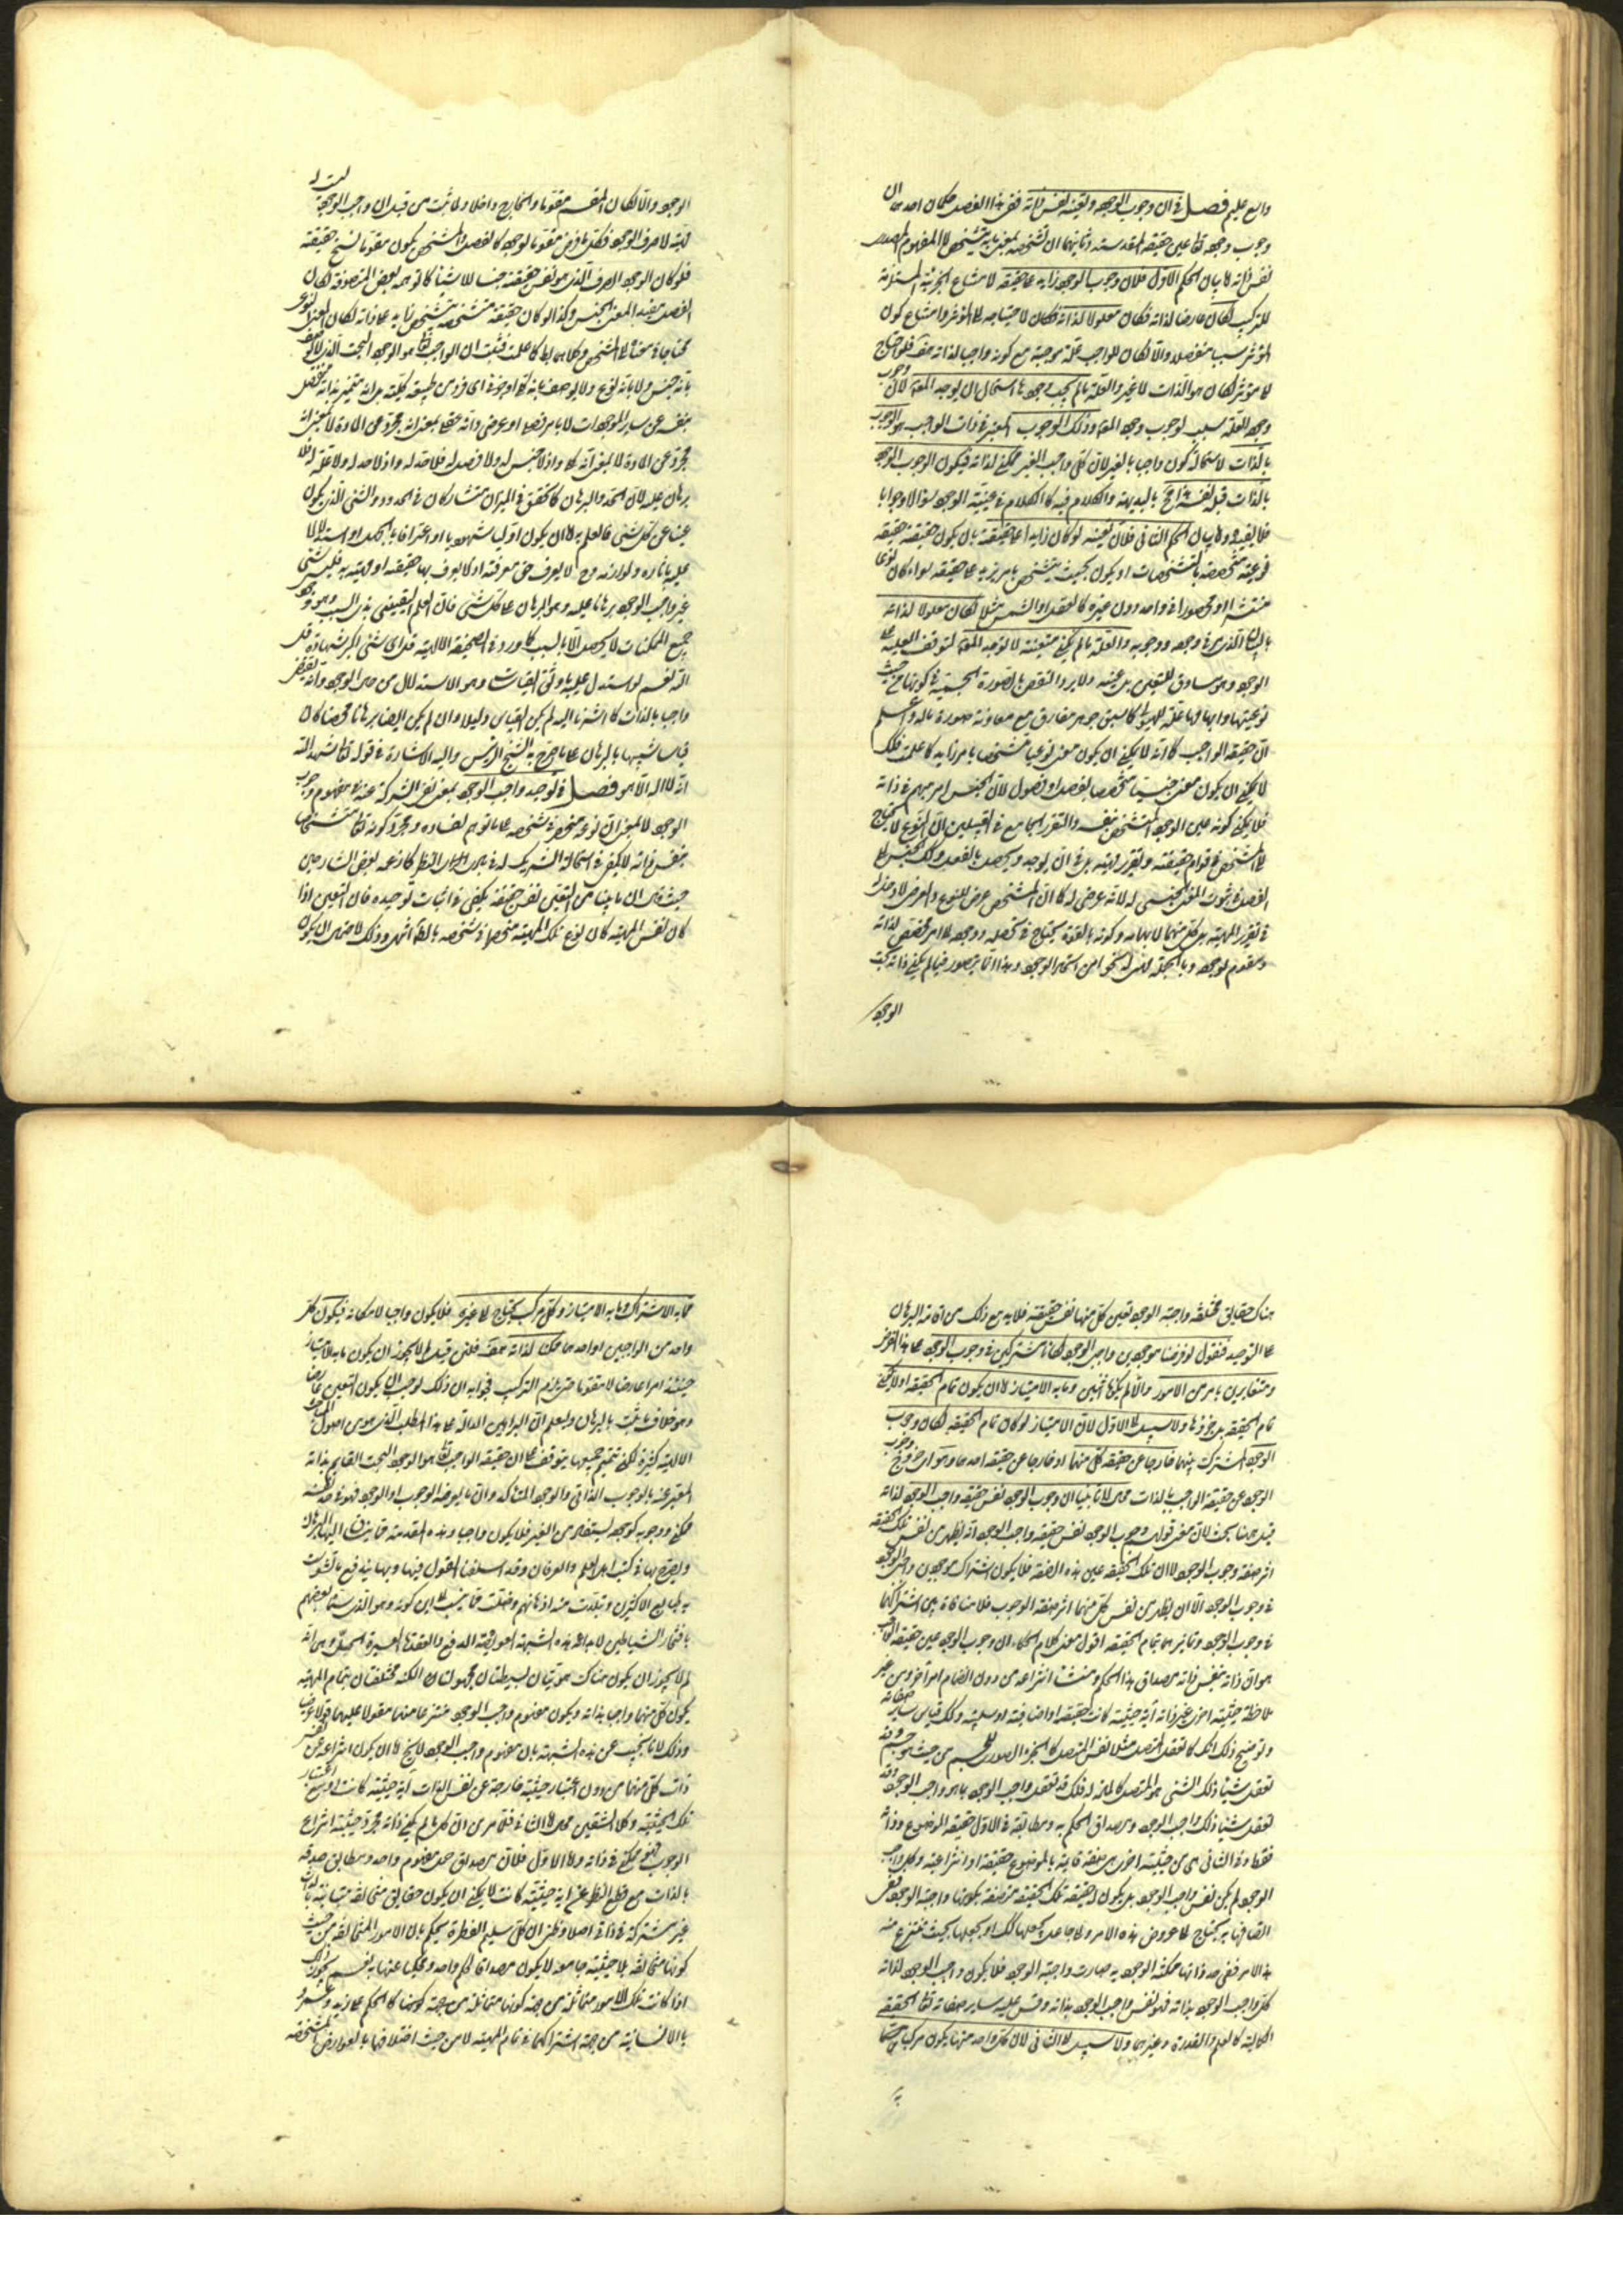 واسع عليم فصل في ان وجوب الوجود وتعينه نفس ذاته ففي هذا الفصل حكمان احدهما ان
وجوب وجوده تعا عين حقيقته المقدسة وثانيهما ان تشخصه بمعنى ما به يتشخص لا المفهوم المصدري
نفس ذاته اما بيان الحكم الاول فلان وجوب الوجود لو زاد على حقيقته لامتناع الجزئية المستلزمة
للتركيب لكان عارضا لذاته فكان معلولا لذاته فكان لاحتياجه الى المؤثر وامتناع كون
المؤثر سببا منفصلا والا لكان للواجب علة موجبة مع كونه واجبا لذاته هف فلو احتاج
الى مؤثر لكان هو الذات لا غير والعلة ما لم يجب وجودها استحال ان يوجد المعلول لان وجوب
وجود العلة سبب لوجوب وجود المعلول وذلك الوجوب المعتبر في ذات الواجب هو الوجوب
بالذات لاستحالة كون واجبا بالغير لان كل واجب بالغير ممكن لذاته فيكون الوجوب الوجود
بالذات قبل نفسه هذا مح بالبديهة والكلام فيه كالكلام في عينية الوجود سؤالا وجوابا
فلا يفيد واما بيان الحكم الثاني فلان تعينه لو كان زايدا على حقيقته بان يكون حقيقته حقيقة
نوعية متحصصة بالتشخصات او يكون بحيث يتشخص بامر يزيد على حقيقته سواء كان نوعا
منتشرا او محصورا في واحد دون غيره كالعقل او الشمس مثلا لكان معلولا لذاته
بالبيان الذي مر في وجوده ووجوبه والعلة ما لم يكن متعينة لا توجد المعلول لتوقف العلية على
الوجود وهو مساوق للتعين بل عينه ولا يرد النقض بالصورة الجسمية في كونها من حيث
نوعيتها وابهامها علة للهيولى كما سبق جوهر مفارق مع معاونة صورة ما له واعلم
ان حقيقة الواجب كما انه لا يمكن ان يكون معنى نوعيا متشخصا بامر زايد كما علمت فكذلك
لا يمكن ان يكون معنى جنسيا متحصلا بفصل او فصول لان الجنس امر مبهم في ذاته
فلا يمكن كونه عين الوجود المتشخص بنفسه والتقرير الجامع في القبيلين ان النوع لا يحتاج
الى المشخص في قوام حقيقته وتقرير ماهيته بل في ان يوجد ويحصل بالفعل وكذلك الجنس الى
الفصل في ثبوت المعنى الجنسي له لانه عرضي له كما ان المتشخص عرض للنوع والعرض لا دخل له
في تقرر الماهية بل كل منهما لابهامه وكونه بالقوة يحتاج في تحصله ووجوده الى امر مخصص لذاته
ومقوم لوجوده وبالجملة للمراتب نحوا من استكمال الوجود وهذا انما يتصور فيما لم يكن ذاته بحت
الوجود
الوجود والا لكان المقسم مقوما والخارج داخلا ولما ثبت من قبل ان واجب الوجود ليست له
ماهية الا صرف الوجود فكل ما فرض مقوما لوجوده كالفصل والمتشخص يكون مقوما لسنخ حقيقته
فلو كان الوجود الصرف الذي هو نفس حقيقته جنسا للاشياء كما توهمه بعض المتصوفة لكان
الفصل مفيدا لمعنى الجنس وكذا لو كان حقيقة متشخصة بتشخص زايد على ذاته لكان المعنى النوعي
محتاجا في معناه الى المشخص وكلاهما بط كما علمت فثبت ان الواجب تعا هو الوجود البحت الذي لا يوصف
بانه جنس ولا بانه نوع ولا يوصف بانه كلي او جزئي اي فرد من طبيعة كلية بل انه متميز بذاته منفصل
بنفسه عن ساير الموجودات لا بامر فصلي او عرضي وانه عقل بمعنى انه مجرد عن المادة لا بمعنى انه
مجرد عن المادة لا بمعنى انه كلي واذ لا جنس له ولا فصل له فلا حد له واذ لا حد له ولا علة له فلا
برهان عليه لان الحد والبرهان كما تحقق في الميزان متشاركان في الحدود والشيء الذي يكون
غنيا عن كل شيء فالعلم به اما ان يكون اوليا شهوديا او اعترافا بالجهل او استدلالا
عليه بآثاره ولوازمه وح لا يعرف حق معرفته اذ كما يعرف بها حقيقته او ماهيته به فليس شيء
غير واجب الوجود برهانا عليه وهو البرهان على كل شيء فان العلم اليقيني بذي السبب وهو وجود
جميع الممكنات لا يحصل الا بالسبب كما ورد في الصحيفة الالهية قل اي شيء اكبر شهادة قل
الله نعم لو استدل عليه باوثق القياسات وهو الاستدلال من حال الوجود وانه يقتضي
واجبا بالذات كما اشرنا اليه لم يكن القياس دليلا وان لم يكن ايضا برهانا محضا كان
قياسا شبيها بالبرهان على ما صرح به الشيخ الرئيس واليه الاشارة في قوله تعا شهد الله
انه لا اله الا هو فصل في توحيد واجب الوجود بمعنى نفي الشركة عنه في مفهوم وجوب
الوجود لا بمعنى ان نوعه منحصر في شخصه على ما توهم لفساده ومجرد كونه تعا متشخصا
بنفس ذاته لا يكفي في استحالة الشريك له في بادي النظر كما زعمه بعض الشارحين
حيث قال ان ما بينا من التعين نفس حقيقته يكفي في اثبات توحيده فان التعين اذا
كان نفس الماهية كان نوع تلك الماهية منحصرا في شخصه بالضرورة انتهى وذلك لاحتمال ان يكون
هناك حقايق مختلفة واجبة الوجود تعين كل منها نفس حقيقته فلا بد مع ذلك من اقامة البرهان
على التوحيد فنقول لو فرضنا موجودين واجبي الوجود لكانا مشتركين في وجوب الوجود على هذا الفرض
ومتغايرين بامر من الامور والا لم يكونا اثنين وما به الامتياز اما ان يكون تمام الحقيقة او لا يكون
تمام الحقيقة بل جزؤها ولا سبيل الى الاول لان الامتياز لو كان تمام الحقيقة لكان وجوب
الوجود المشترك بينهما خارجا عن حقيقة كل منهما او خارجا عن حقيقة احدهما وهو اي خروج وجوب
الوجود عن حقيقة الواجب بالذات مح لما بينا ان وجوب الوجود نفس حقيقة واجب الوجود لذاته
قيل ههنا بحث لان معنى قولهم وجوب الوجود نفس حقيقة واجب الوجود انه يظهر من نفس تلك الحقيقة
اثر صفة وجوب الوجود لا ان تلك الحقيقة عين هذه الصفة فلا يكون اشتراك موجودين واجبي الوجود
في وجوب الوجود الا ان يظهر من نفس كل منهما اثر صفة الوجوب فلا منافاة بين اشتراكهما
في وجوب الوجود وتمايزهما بتمام الحقيقة اقول معنى كلام الحكماء ان وجوب الوجود عين حقيقة الواجب
هو ان ذاته بنفس ذاته مصداق هذا الحكم ومنشأ انتزاعه من دون انضمام امر آخر ومن غير
ملاحظة حيثية اخرى غير ذاته اية حيثية كانت حقيقية او اضافية او سلبية وكذلك قياس ساير صفاته
وتوضيح ذلك انك كما تعقل المتصل مثلا نفس المتصل كالجزء الصوري للجسم من حيث هو جسم وقد
تعقل شيئا ذلك الشيء هو المتصل كالمادة فكذلك قد تعقل واجب الوجود بما هو واجب الوجود وقد
تعقل شيئا ذلك واجب الوجود ومصداق الحكم به ومطابقه في الاول حقيقة الموضوع وذاته
فقط وفي الثاني هي من حيثية اخرى هي صفة قايمة بالموضوع حقيقية او انتزاعية وكل واجب
الوجود لم يكن نفس واجب الوجود بل يكون له حقيقة تلك الحقيقة متصفة بكونها واجبة الوجود ففي
اتصافها به يحتاج الى عروض هذه الامر والى جاعل يجعلها كذلك او يجعلها بحيث ينتزع منه
هذا الامر ففي حد ذاتها ممكنة الوجود به صارت واجبة الوجود فلا يكون واجب الوجود لذاته
كل واجب الوجود بذاته فهو نفس واجب الوجود بذاته وقس عليه ساير صفاته تعا الحقيقية
الكمالية كالعلم والقدرة وغيرهما ولا سبيل الى الثاني لان كل واحد منهما يكون مركبا ح
مما به الاشتراك وما به الامتياز وكل مركب يحتاج الى غيره فلا يكون واجبا لامكانه فيكون كل
واحد من الواجبين او احدهما ممكنا لذاته هف فلئن قيل لم لا يجوز ان يكون ما به الامتياز
حينئذ امرا عارضا لا مقوما حتى يلزم التركيب فجوابه ان ذلك يوجب ان يكون التعين عارضا
وهو خلاف ما ثبت بالبرهان وليعلم ان البراهين الدالة على هذا المطلب الذي هو من اصول المباحث
الالهية كثيرة لكن تتميم جميعها يتوقف على ان حقيقة الواجب تعا هو الوجود البحت القايم بذاته
المعبر عنه بالوجوب الذاتي والوجود المتاكد وان ما يعرضه الوجوب او الوجود فهو في حد نفسه
ممكن ووجوبه كوجوده يستفاد من الغير فلا يكون واجبا وهذه المقدمة مما ينساق اليها البرهان
ويصرح بها في كتب اهل العلم والعرفان وقد اسلفنا القول فيها وبها يندفع ما تشوشت
به طبايع الاكثرين وتبلدت منه اذهانهم وضلت مما ينسب الى ابن كمونة وهو الذي سماه بعضهم
بافتخار الشياطين لابداعه هذه الشبهة العويصة الدفع والعقدة العسيرة الحل وهي انه
لم لا يجوز ان يكون هناك هويتان بسيطتان مجهولتان الكنه مختلفتان بتمام الماهية
يكون كل منهما واجبا بذاته ويكون مفهوم واجب الوجود منتزعا منهما مقولا عليهما قولا عرضيا
وذلك لانا نجيب عن هذه الشبهة بان مفهوم واجب الوجود لا يخ اما ان يكون انتزاعه عن نفس
ذات كل منهما من دون اعتبار حيثية خارجة عن نفس الذات اية حيثية كانت او مع اعتبار
تلك الحيثية وكلا الشقين مح اما الثاني فلما مر من ان كل ما لم يكن ذاته مجرد حيثية انتزاع
الوجوب فهو ممكن في ذاته واما الاول فلان مصداق حمل مفهوم واحد ومطابق صدقه
بالذات مع قطع النظر عن اية حيثية كانت لا يمكن ان يكون حقايق متخالفة متباينة بالذات
غير مشتركة في ذاتي اصلا وظني ان كل سليم الفطرة يحكم بان الامور المتخالفة من حيث
كونها متخالفة بلا حيثية جامعة لا يكون مصداقا لحكم واحد ومحكيا عنها به نعم يجوز ذلك
اذا كانت تلك الامور متماثلة من جهة كونها متماثلة من جهة كونها كالحكم على زيد وعمرو
بالانسانية من جهة اشتراكهما في تمام الماهية لا من حيث اختلافها بالعوارض المشخصة